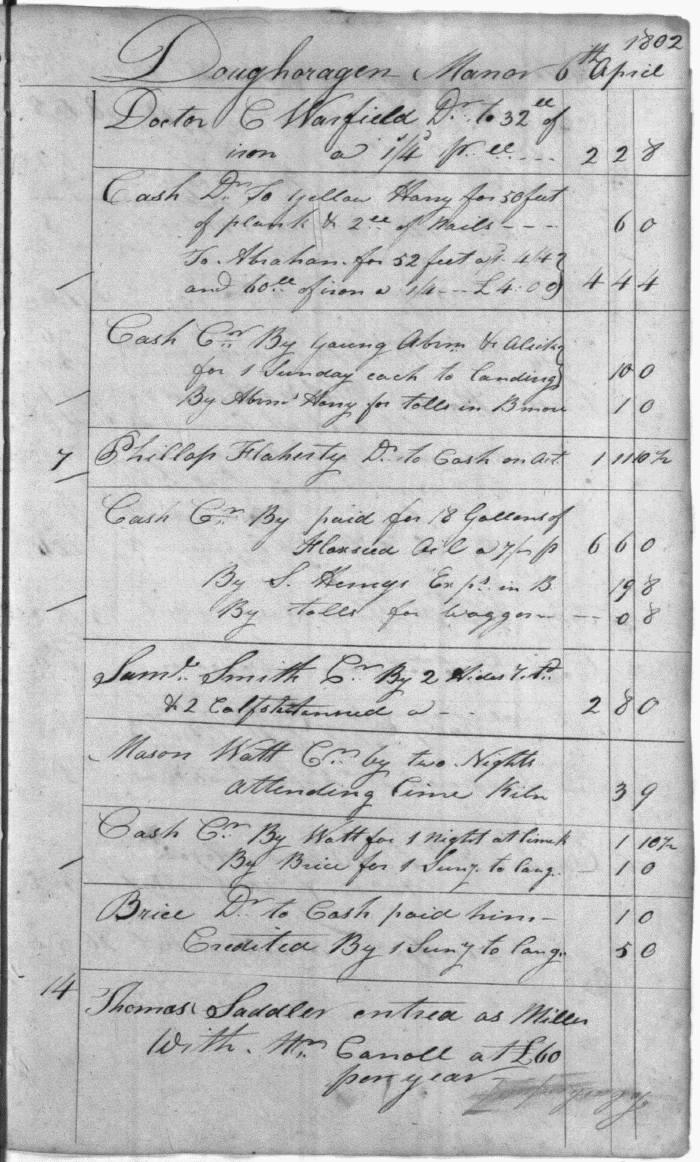 1802
Doughoragen Manor 6th April
Doctor C Warfield Dr. to 32 ll of
iron a 1/4 pr. ll --- 2 2 8
Cash Dr. To Yellow Harry for 50 feet
of plank & 2 ll of Nails --- 6 0
To Abraham for 52 feet at
and 60 ll of iron a 1/4 -- £4:0:0 4 4 4
Cash Cr. By young Abrm &
for 1 Sunday each to landing 10 0
By Abrm Harry for tolls in Bmore 1 0
7 Phillop Flaherty Dr. to Cash on act 1 11 10½
Cash Cr. By paid for 18 Gallons of
Flaxseed Oil a 7/- p 6 6 0
By S. Henrys Exps. in B. 19 8
By tolls for waggon --- 0 8
Saml. Smith Cr. By 2 Hides
& 2 Calfskins tanned a -- 2 8 0
Mason Watt Cr. by two Nights
attending Lime Kiln 3 9
Cash Cr. By Watt for 1 Night at limek 1 10½
By Brice for 1 Suny. to lang. - 1 0
Brice Dr. to Cash paid him - 1 0
Credited By 1 Suny to lang. 5 0
14
Thomas Saddler entred as Miller
With Mr. Carroll at £60
per year